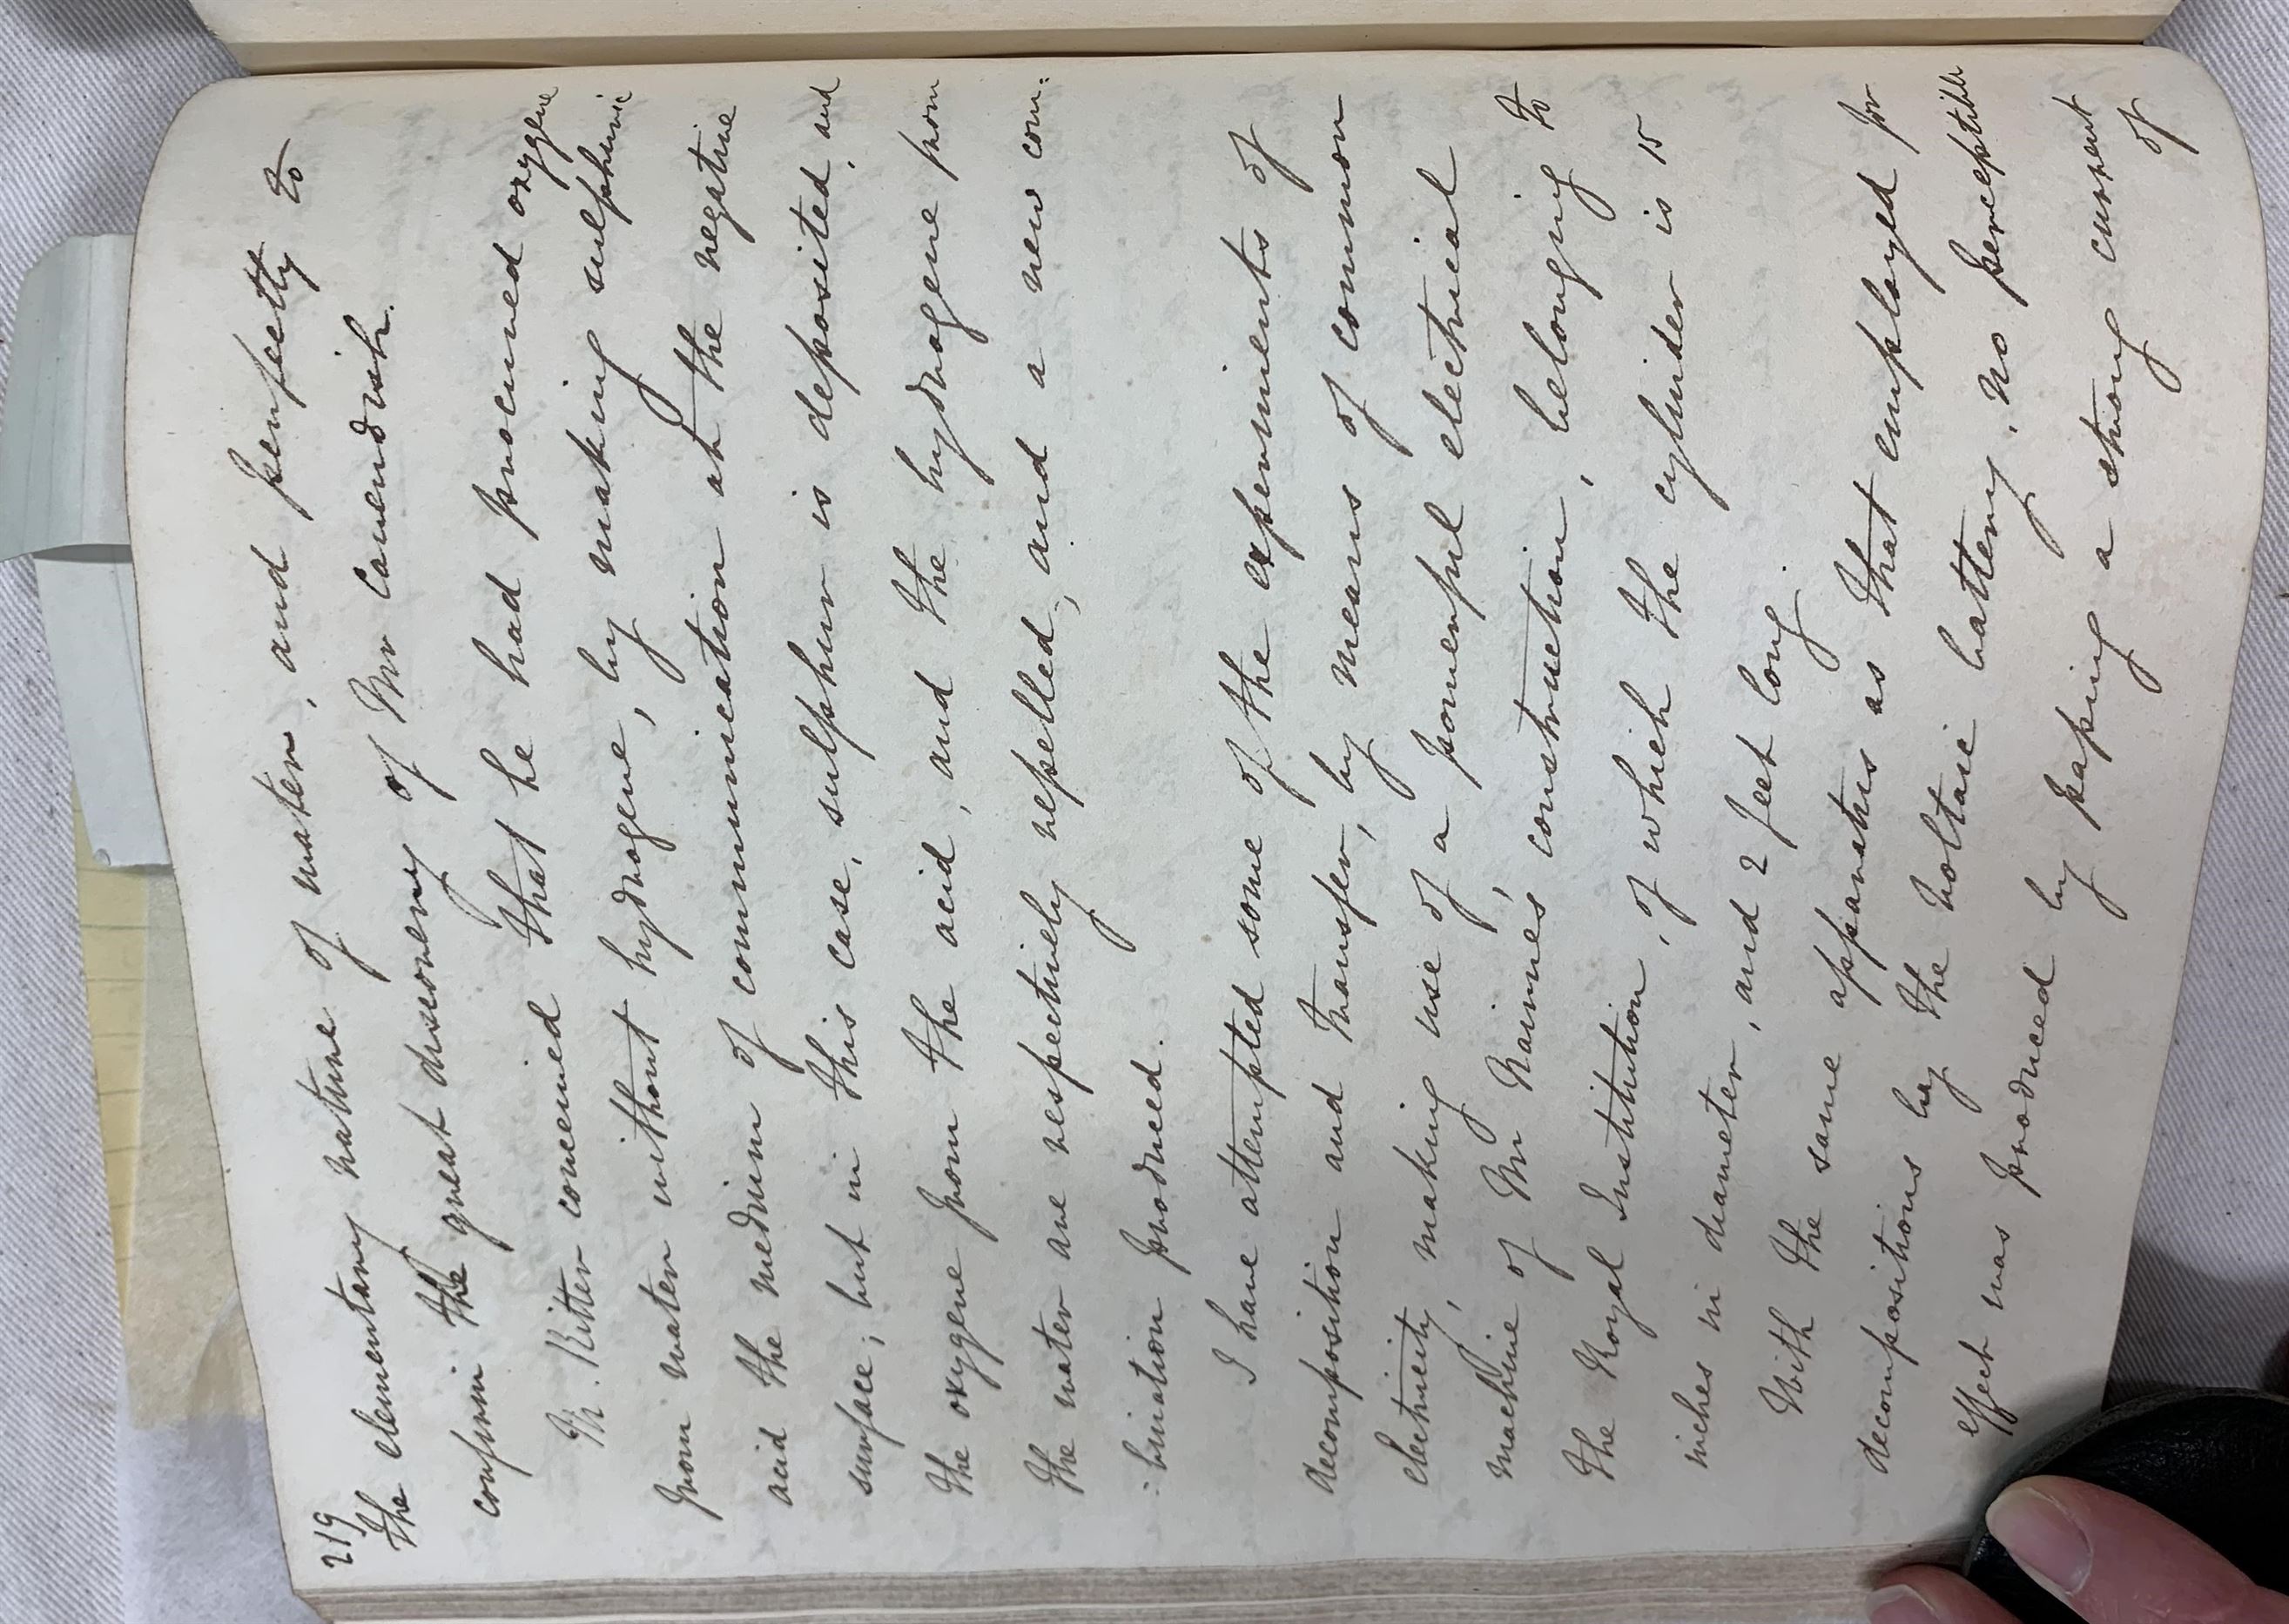 219
the elementary nature of water, and perfectly to
confirm the great discovery of Mr Cavendish.
M. Ritter conceived that he had procured oxygene
from water without hydrogene, by making sulphuric
acid the medium of communication at the negative
surface; but in this case, sulphur is deposited, and
the oxygene from the acid, and the hydrogene from
the water are respectively repelled; and a new com:
:bination produced.
I have attempted some of the experiments of
decomposition and transfer, by means of common
electricity, making use of a powerful electrical
machine of Mr Nairne's construction, belonging to
the Royal Institution, of which the cylinder is 15
inches in diameter, and 2 feet long.
With the same apparatus as that employed for
decompositions by the Voltaic battery, no perceptible
effect was produced by passing a strong current
of